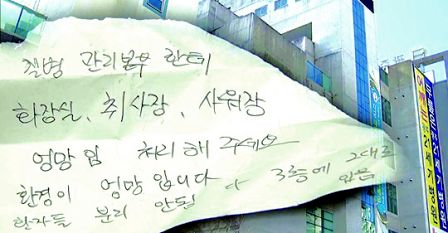 질병 관리본부 한테
화장실, 취사장, 샤워장
엉망임 처리해 주세요
환경이 엉망입니다
환자들 분리 안됨 다 3층에 그대로
있음